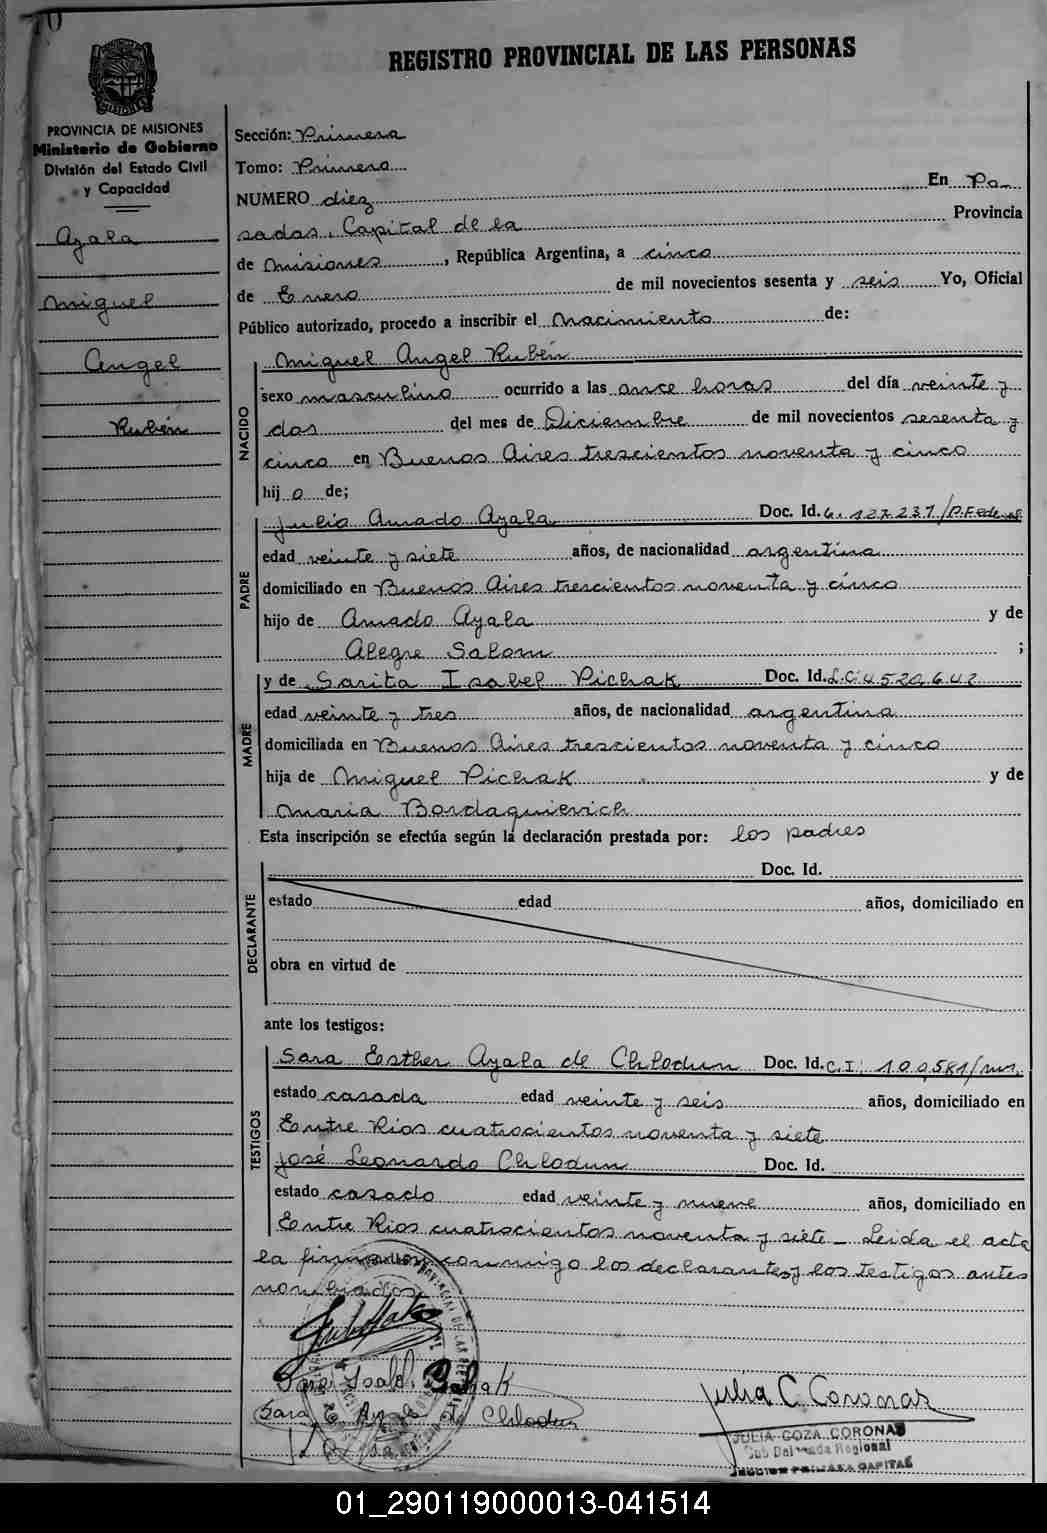 70
REGISTRO PROVINCIAL DE LAS PERSONAS
MISIONES
PROVINCIA DE MISIONES
Ministerio de Gobierno
División del Estado Civil
y Capacidad
Ayala
Miguel
Angel
Rubén
Sección: Primera
Tomo: Primero
NUMERO diez En Po-
sadas, Capital de la Provincia
de Misiones, República Argentina, a cinco
de Enero de mil novecientos sesenta y seis Yo, Oficial
Público autorizado, procedo a inscribir el Nacimiento de:
NACIDO
Miguel Angel Rubén
sexo masculino ocurrido a las once horas del día veinte y
dos del mes de Diciembre de mil novecientos sesenta y
cinco en Buenos Aires trescientos noventa y cinco
hij o de;
PADRE
Julio Amado Ayala Doc. Id. 4.127.237/P.Federal
edad veinte y siete años, de nacionalidad argentina
domiciliado en Buenos Aires trescientos noventa y cinco
hijo de Amado Ayala y de
Alegre Salom ;
MADRE
y de Sarita Isabel Pichak Doc. Id. L.C. 4.520.642
edad veinte y tres años, de nacionalidad argentina
domiciliada en Buenos Aires trescientos noventa y cinco
hija de Miguel Pichak y de
Maria Bordaquievich
Esta inscripción se efectúa según la declaración prestada por: los padres
DECLARANTE
Doc. Id.
estado edad años, domiciliado en
obra en virtud de
ante los testigos:
TESTIGOS
Sara Esther Ayala de Chlodun Doc. Id. C.I. 100,581/mns.
estado casada edad veinte y seis años, domiciliado en
Entre Rios cuatrocientos noventa y siete
José Leonardo Chlodun Doc. Id.
estado casado edad veinte y nueve años, domiciliado en
Entre Rios cuatrocientos noventa y siete - Leida el acta
la firman conmigo los declarantes y los testigos antes
nombrados
Sara Isabel Pichak
Sara E. Ayala de Chlodun
Julia C. Coronas
JULIA GOZA CORONAS
Sub Delegada Regional
SECCION PRIMERA CAPITAL
01_290119000013-041514